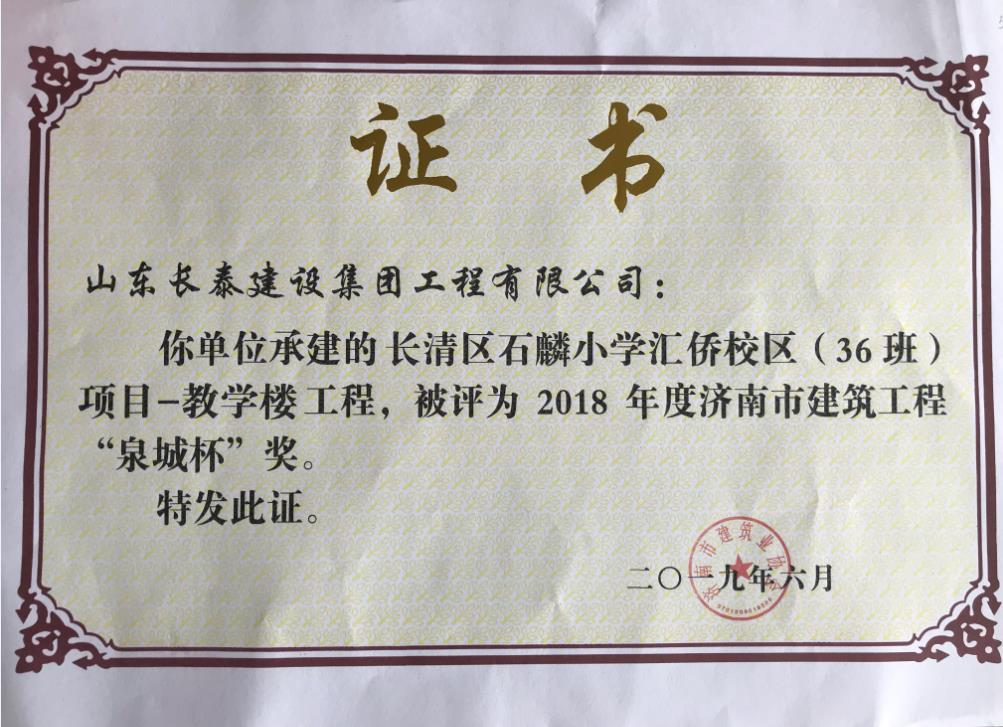 证 书
山东长泰建设集团工程有限公司：
你单位承建的长清区石麟小学汇侨校区（36班）
项目-教学楼工程，被评为 2018 年度济南市建筑工程
“泉城杯”奖。
特发此证。
二〇一九年六月
济南市建筑业协会